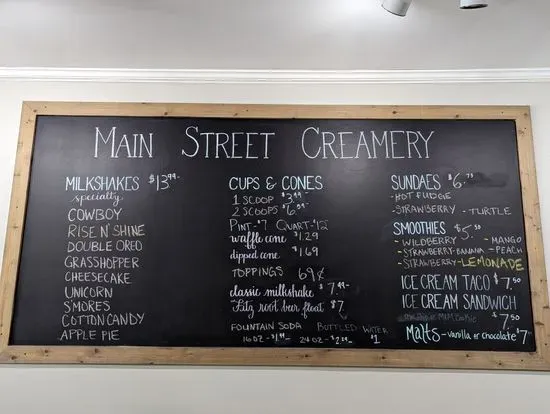 MAIN STREET CREAMERY
MILKSHAKES $13.99
specialty
COWBOY
RISE N' SHINE
DOUBLE OREO
GRASSHOPPER
CHEESECAKE
UNICORN
S'MORES
COTTON CANDY
APPLE PIE
CUPS & CONES
1 SCOOP $3.99
2 SCOOPS $6.59
PINT-$7 QUART-$12
waffle cone $1.29
dipped cone $1.69
TOPPINGS 69¢
classic milkshake $7.49
Fitz root beer float $7
FOUNTAIN SODA BOTTLED WATER
16OZ - 24OZ - $1
SUNDAES $6.
-HOT FUDGE
-STRAWBERRY - TURTLE
SMOOTHIES $5.50
- WILDBERRY - MANGO
- STRAWBERRY-BANANA - PEACH
- STRAWBERRY-LEMONADE
ICE CREAM TACO $7.50
ICE CREAM SANDWICH
$7.50
or M&M Cookie
Malts - vanilla or chocolate $7